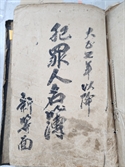 大正四年以降
犯罪人名簿
新等面